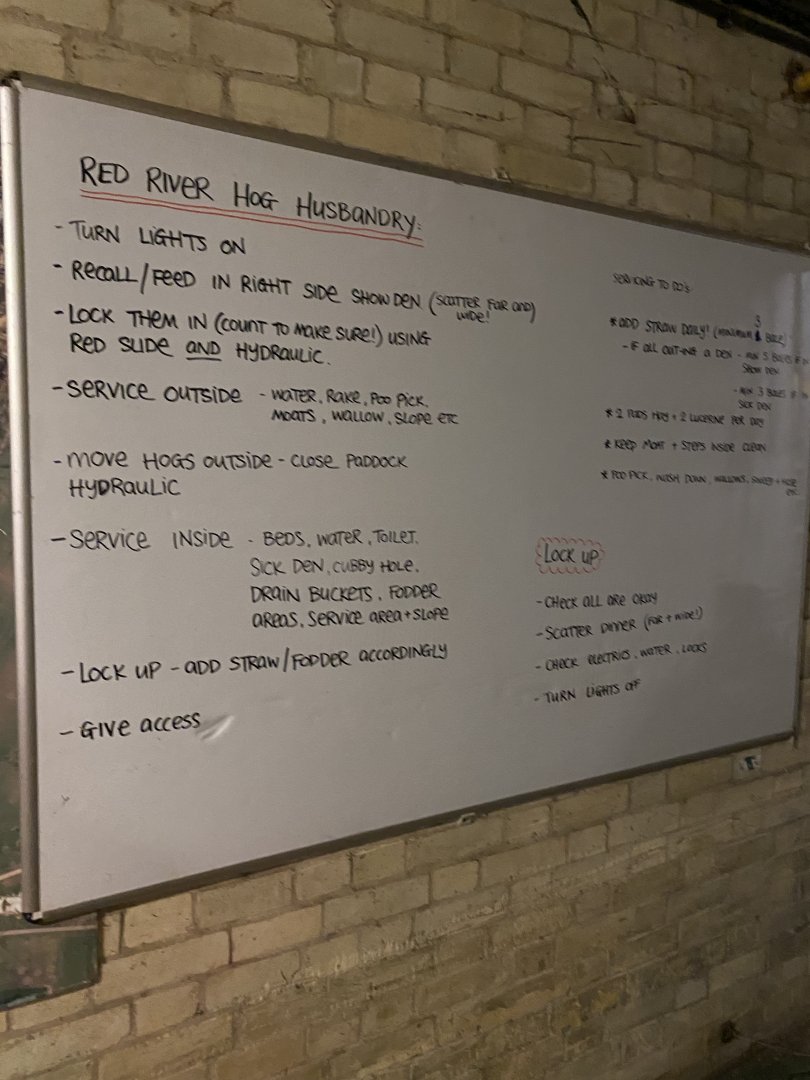 RED RIVER HOG HUSBANDRY:
- TURN LIGHTS ON
- RECALL/FEED IN RIGHT SIDE SHOW DEN (SCATTER FAR AND
WIDE!)
- LOCK THEM IN (COUNT TO MAKE SURE!) USING
RED SLIDE AND HYDRAULIC.
- SERVICE OUTSIDE - WATER, RAKE, POO PICK,
MOATS, WALLOW, SLOPE ETC
- MOVE HOGS OUTSIDE - CLOSE PADDOCK
HYDRAULIC
- SERVICE INSIDE - BEDS, WATER, TOILET,
SICK DEN, CUBBY HOLE,
DRAIN BUCKETS, FODDER
AREAS, SERVICE AREA + SLOPE
- LOCK UP - ADD STRAW/FODDER ACCORDINGLY
- GIVE ACCESS
SERVICING TO DO's
* ADD STRAW DAILY! (MINIMUM 3 BALE)
- IF ALL OUT-ING A DEN - MIN 5 BALES IF
SHOW DEN
- MIN 3 BALES IF
SICK DEN
* 2 HAY + 2 LUCERNE PER DAY
* KEEP MOAT + STEPS INSIDE CLEAN
* POO PICK, WASH DOWN, WALLOWS, SWEEP + HOSE
ETC
LOCK UP
- CHECK ALL ARE OKAY
- SCATTER DINNER (FAR + WIDE!)
- CHECK ELECTRICS, WATER, LOCKS
- TURN LIGHTS OFF